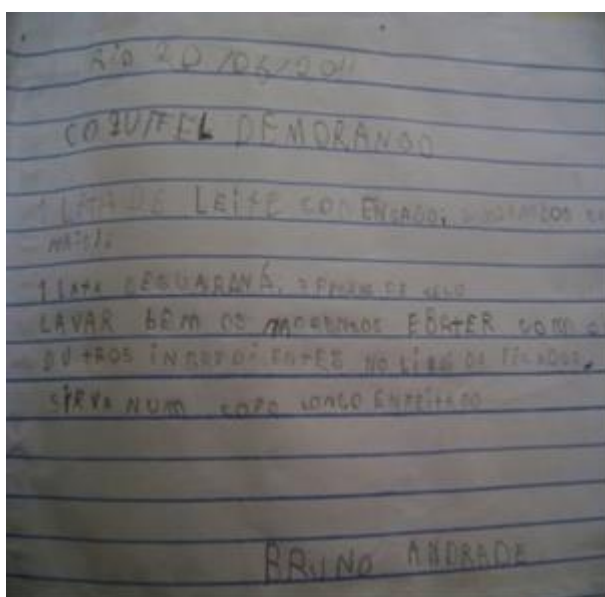 RIO 20/05/2011
COQUITEL DEMORANGO
1 LATA DE LEITE CONDENSADO,
1 LATA DEGUARANÁ, 3 PEDRAS DE GELO
LAVAR BEM OS MORANGOS EBATER COM O
OUTROS INGREDIENTES NO LIQUIDIFICADOR,
SIRVA NUM COPO LONGO ENFEITADO
BRUNO ANDRADE